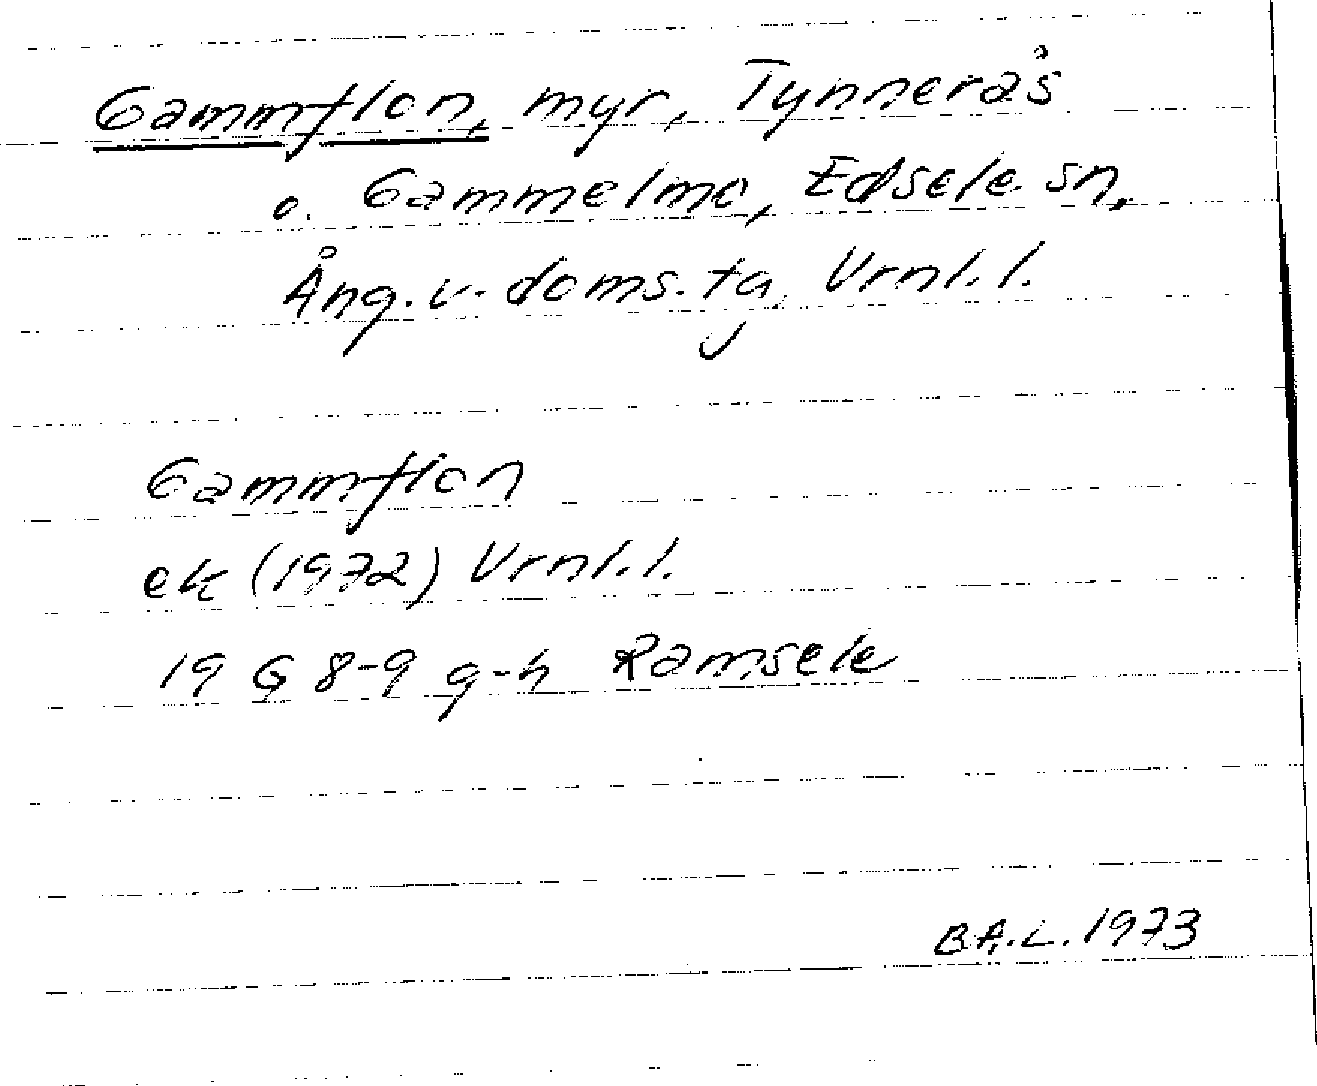 Gammflon, myr, Tynnerås
o. Gammelmo, Edsele sn,
Ång. v. doms. tg, Vrnl. l.
Gammflon
ek (1972) Vrnl. l.
19 G 8-9 g-h Ramsele
B.A.L. 1973